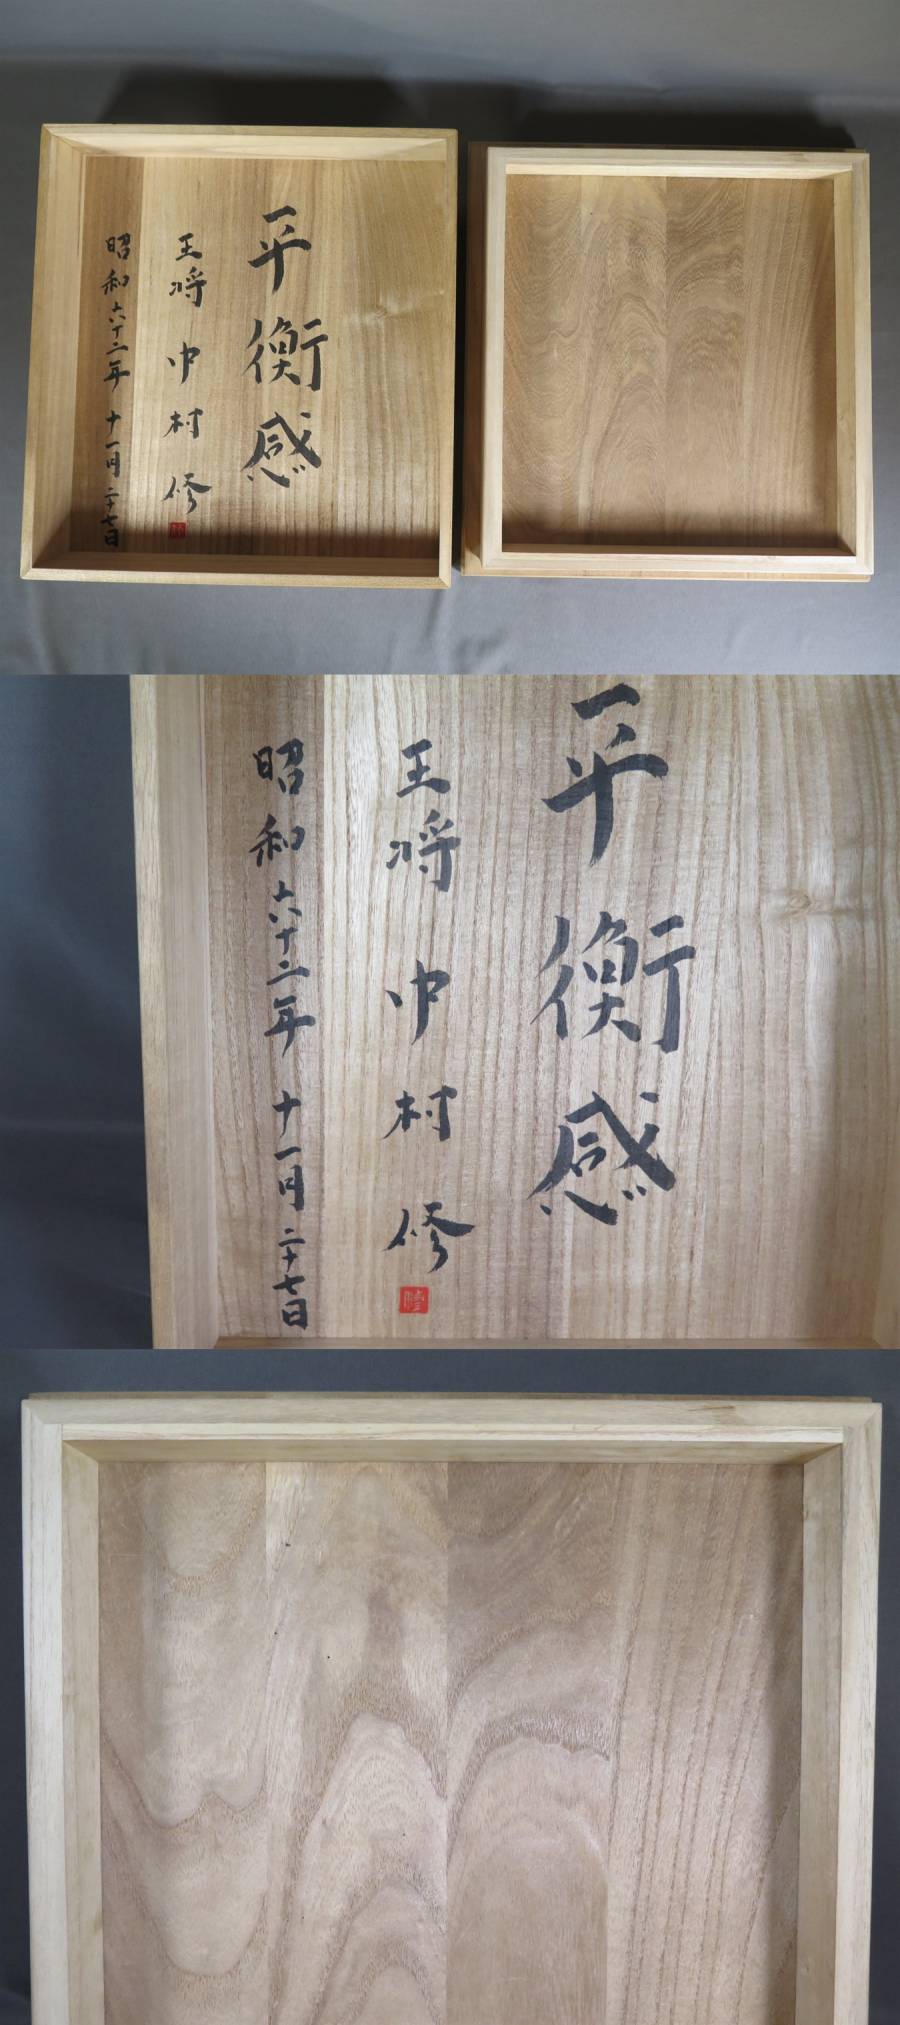 平衡感
王将 中村修
昭和六十二年 十一月二十七日
平衡感
王将 中村修
昭和六十二年 十一月二十七日